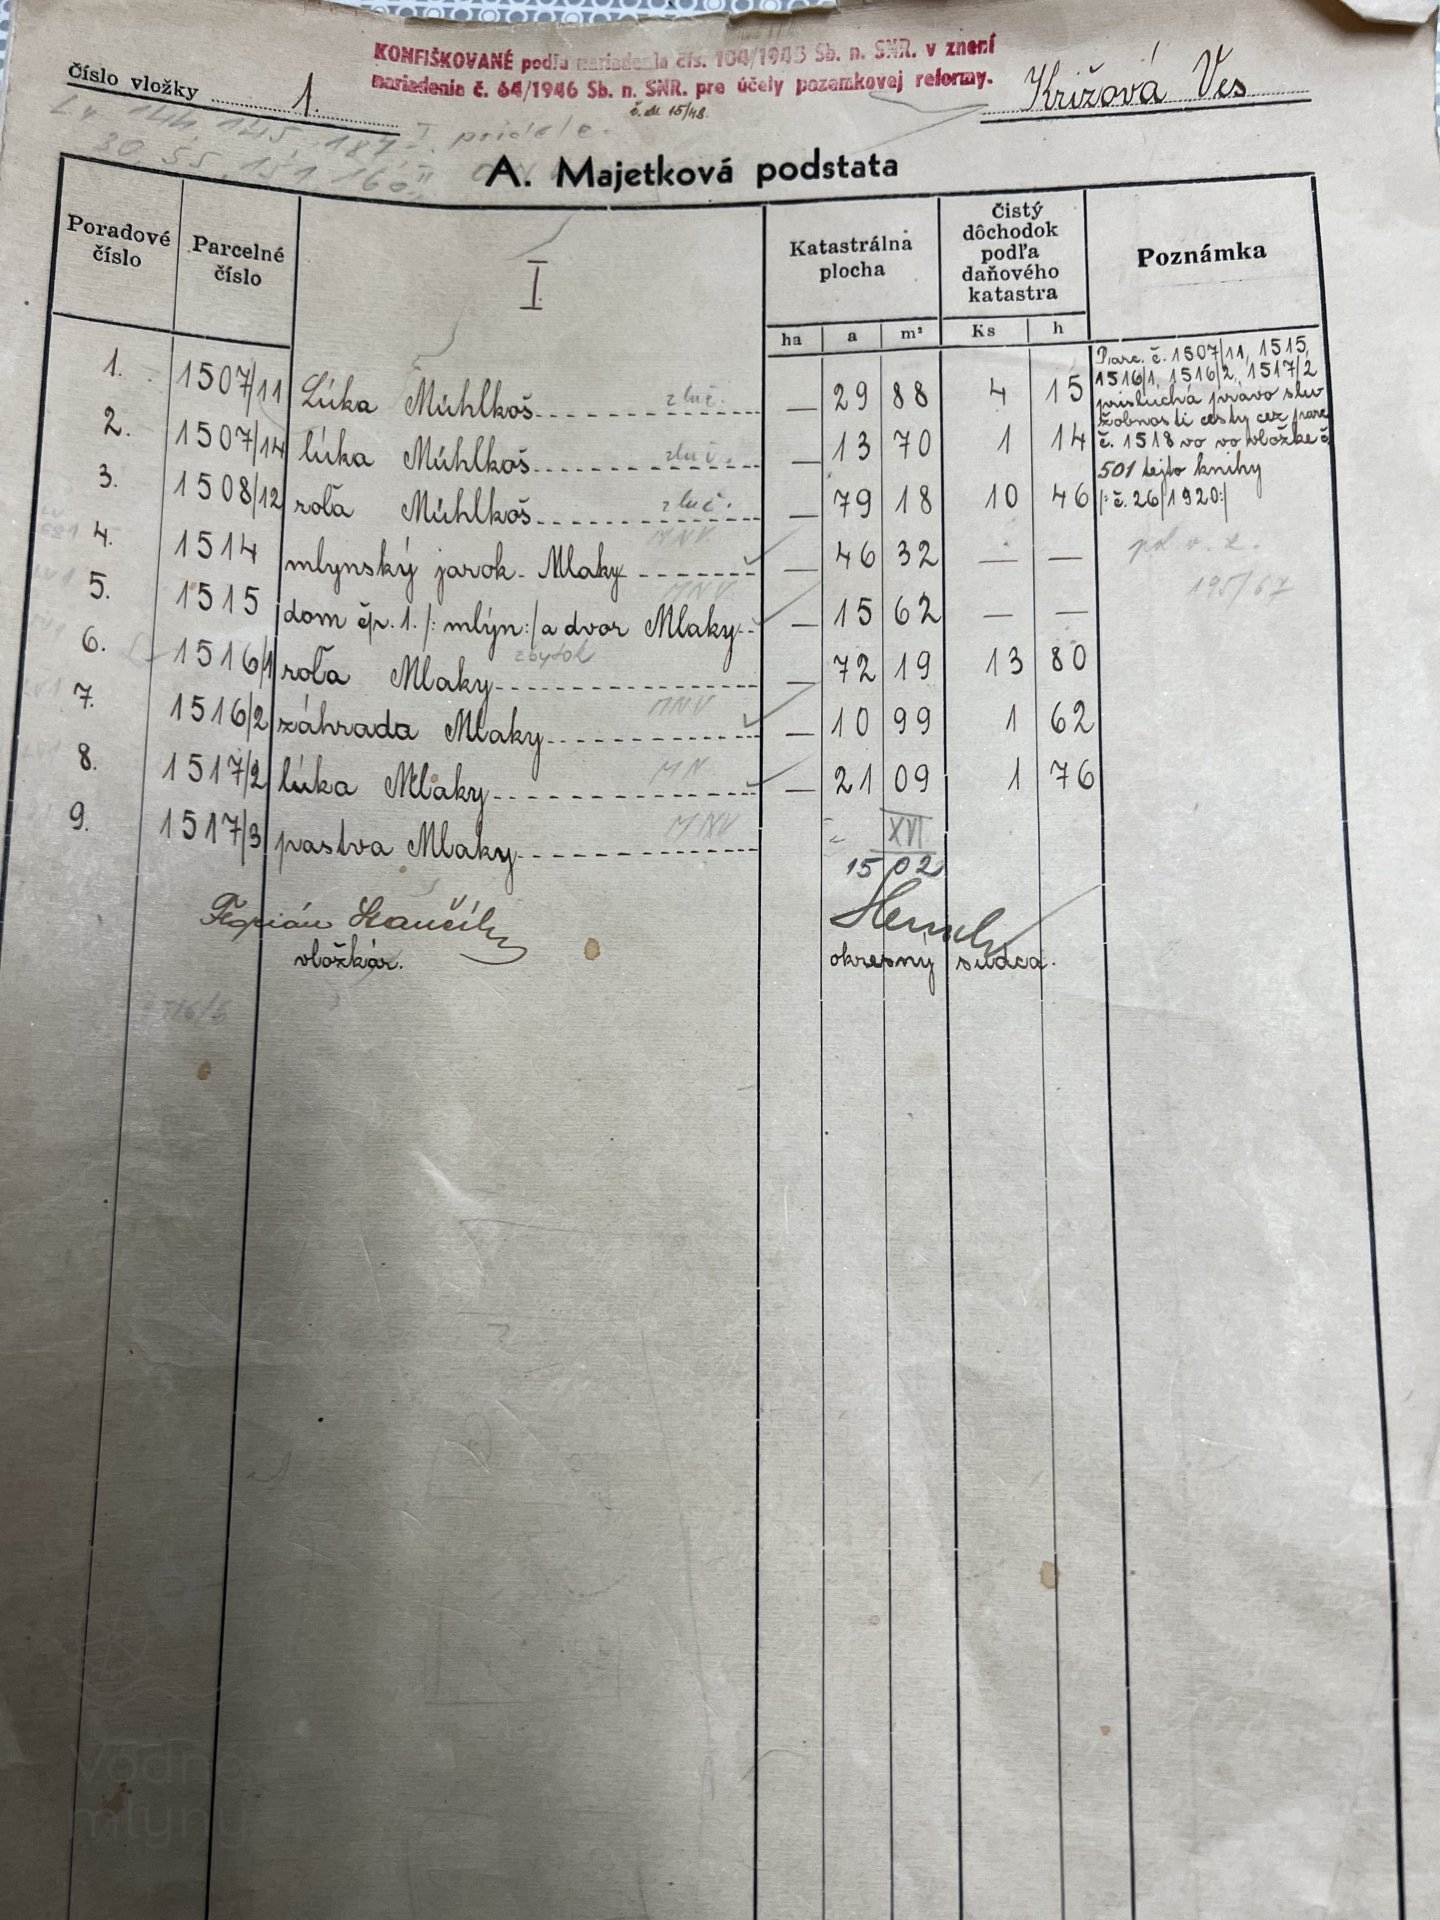 KONFIŠKOVANÉ podľa nariadenia čís. 104/1945 Sb. n. SNR. v znení
nariadenia č. 64/1946 Sb. n. SNR. pre účely pozemkovej reformy.
15/48.
Číslo vložky 1.
Križová Ves
A. Majetková podstata
Poradové číslo
Parcelné číslo
I
Katastrálna plocha
Čistý dôchodok podľa daňového katastra
Poznámka
ha a m² Ks h
1. 1507/11 Lúka Múhlkoš zluč. — 29 88 4 15
2. 1507/14 lúka Múhlkoš zluč. — 13 70 1 14
3. 1508/12 roľa Múhlkoš zluč. — 79 18 10 46
4. 1514 mlynský jarok Mlaky MNV — 46 32 — —
5. 1515 dom čp. 1. /: mlýn :/ a dvor Mlaky MNV — 15 62 — —
6. 1516/1 roľa Mlaky zbytok — 72 19 13 80
7. 1516/2 záhrada Mlaky MNV — 10 99 1 62
8. 1517/2 lúka Mlaky MN — 21 09 1 76
9. 1517/3 pastva Mlaky MNV
XVI
15 02
Parc. č. 1507/11, 1515,
1516/1, 1516/2, 1517/2
prislucha právo slu
žobnosti cesty cez parc
č. 1518 vo vo vložke č
501 tejto knihy
/: č. 26/1920 :/
195/67
Florián
vložkár.
okresný sudca.
Vodné
mlyny